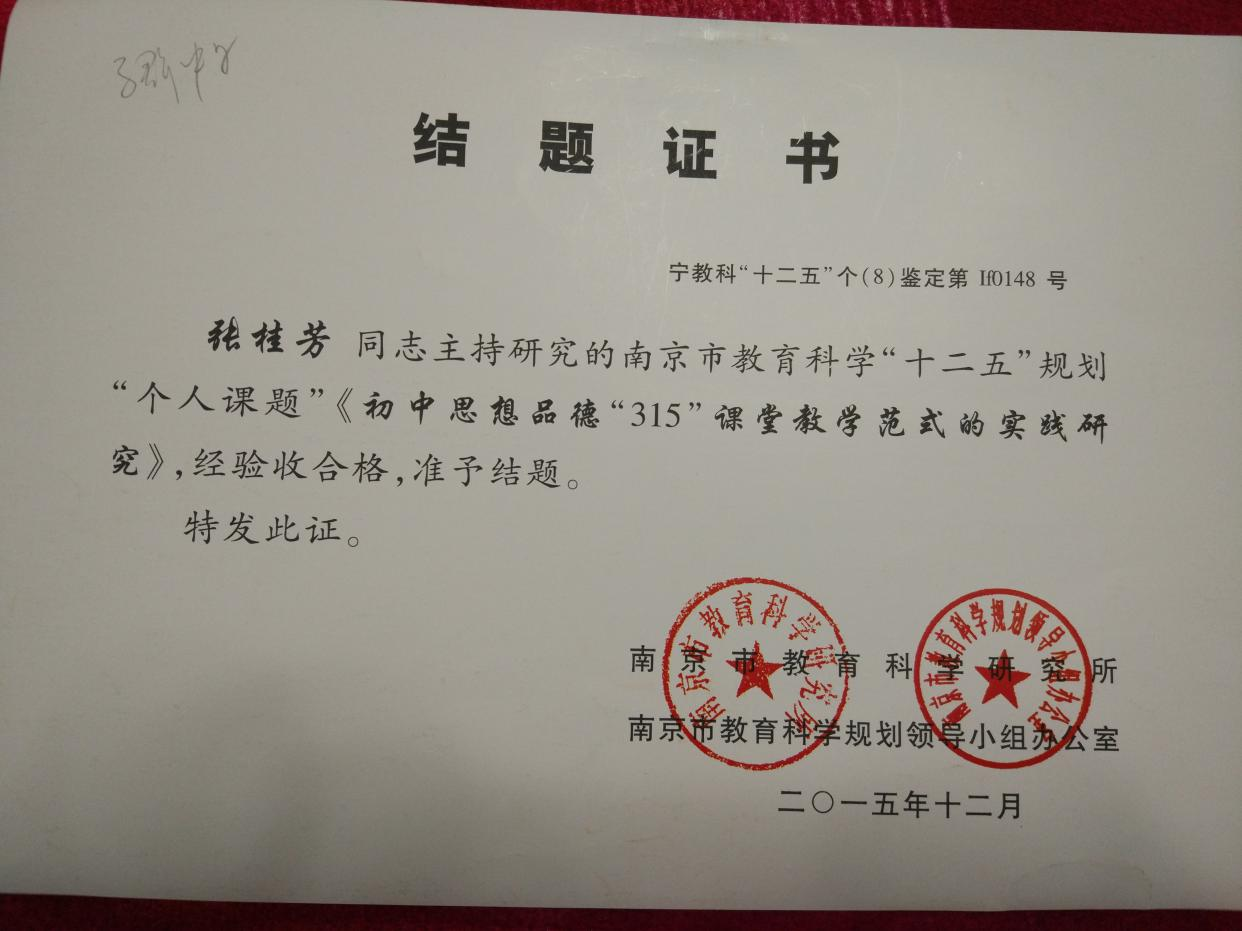 结题证书
宁教科“十二五”个(8)鉴定第 If0148 号
张桂芳 同志主持研究的南京市教育科学“十二五”规划
“个人课题”《初中思想品德“315”课堂教学范式的实践研
究》,经验收合格,准予结题。
特发此证。
南京市教育科学研究所
南京市教育科学规划领导小组办公室
二〇一五年十二月
南京市教育科学研究所
南京市教育科学规划领导小组办公室